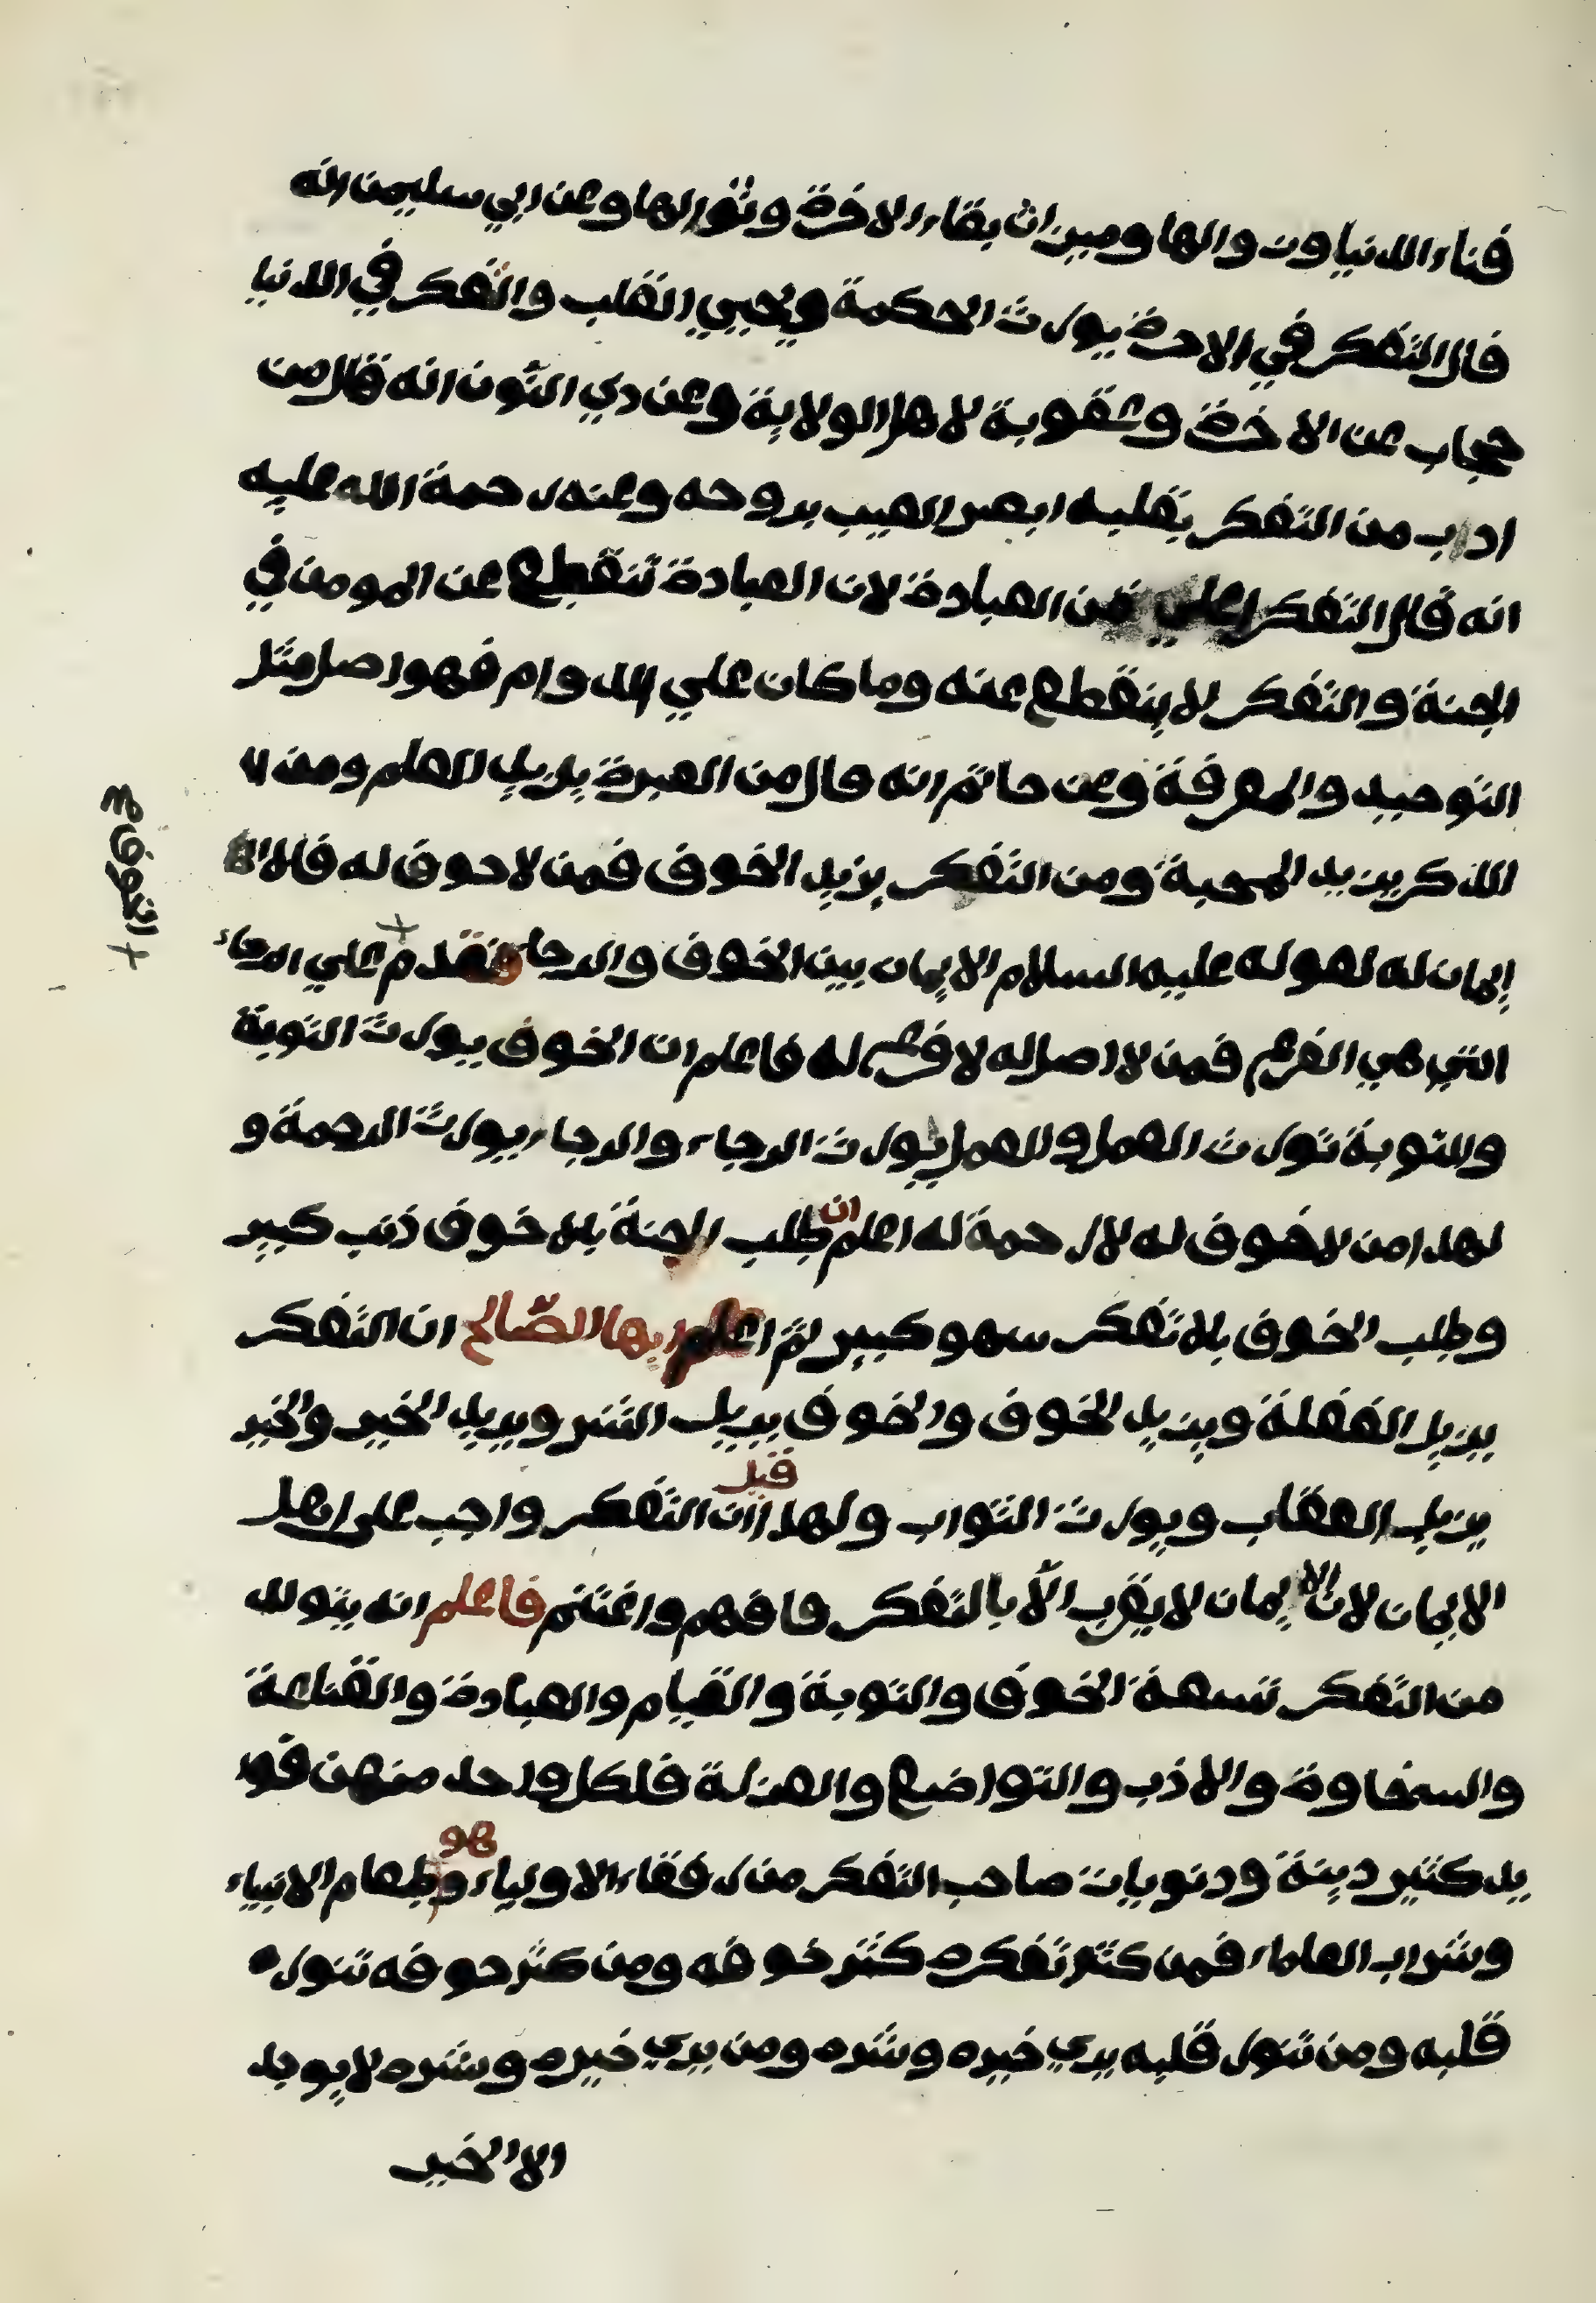 فناء الدنيا وزوالها وميزان بقاء الاخرة وثوابها وعن ابي سليمن انه
قال التفكر في الاخرة يورث الحكمة ويحيي القلب والتفكر في الدنيا
حجاب عن الاخرة وعقوبة لاهل الولاية وعن ذي النون انه قال من
اداب من التفكر بقلبه ابصر الغيب بروحه وعنه رحمة الله عليه
انه قال التفكر اعلي من العبادة لان العبادة تنقطع عن المومن في
الجنة والتفكر لا ينقطع عنه وما كان علي الدوام فهو اصل مثل
التوحيد والمعرفة وعن حاتم انه قال من العبرة يزيد العلم ومن ال
الذكر يزيد المحبة ومن التفكر يزيد الخوف فمن لا خوف له فلا
ايمان له لقوله عليه السلام الايمان بين الخوف والرجا فقدم علي الرجاء
التي هي الفرع فمن لا اصل له لا فرع له فاعلم ان الخوف يورث التوبة
والتوبة تورث العمل والعمل يورث الرجاء والرجاء يورث الرحمة و
لهذا من لا خوف له لا رحمة له اعلم ان طلب الجنة بلا خوف ذنب كبير
وطلب الخوف بلا تفكر سهو كبير ثم اعلم ايها الصّالح ان التفكر
يزيل الغفلة ويزيد الخوف والخوف يزيل الشر ويزيد الخير والخير
يزيل العقاب ويورث الثواب ولهذا قيل ان التفكر واجب على اهل
الايمان لان الايمان لا يقرب الّا بالتفكر فافهم واغتنم فاعلم انه يتولد
من التفكر تسعة الخوف والتوبة والقيام والعبادة والقناعة
والسخاوة والاذب والتواضع والعزلة فلكل واحد منهن فوا
يد كثير دينة ودنويات صاحب التفكر من رفقاء الاولياء وهو طعام الانبياء
وشراب العلماء فمن كثر تفكره كثر خوفه ومن كثر خوفه تنور
قلبه ومن تنور قلبه يري خيره وشره ومن يري خيره وشره لا يوجد
الا الخير
الخوف